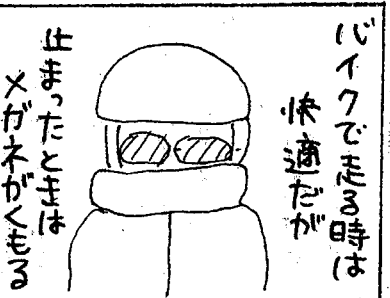 バイクで走る時は
快適だが
止まったときは
メガネがくもる